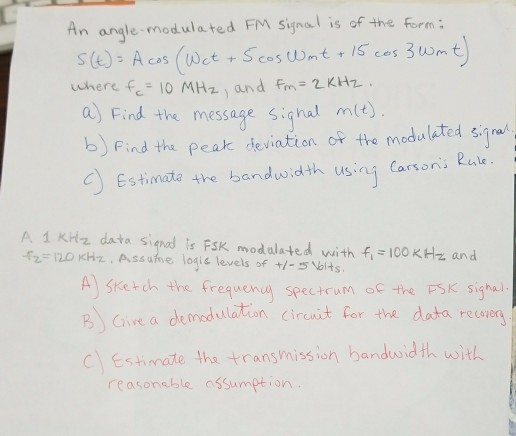 An angle-modulated FM signal is of the form:
S(t) = A cos (Wct + 5 cos Wmt + 15 cos 3Wmt)
where fc = 10 MHz, and Fm = 2 KHz.
a) Find the message signal m(t).
b) Find the peak deviation of the modulated signal.
c) Estimate the bandwidth using Carson's Rule.
A 1 KHz data signal is FSK modulated with f1 = 100 KHz and
f2 = 120 KHz. Assume logic levels of +/- 5 Volts.
A) Sketch the frequency spectrum of the FSK signal.
B) Give a demodulation circuit for the data recovery
C) Estimate the transmission bandwidth with
reasonable assumption.